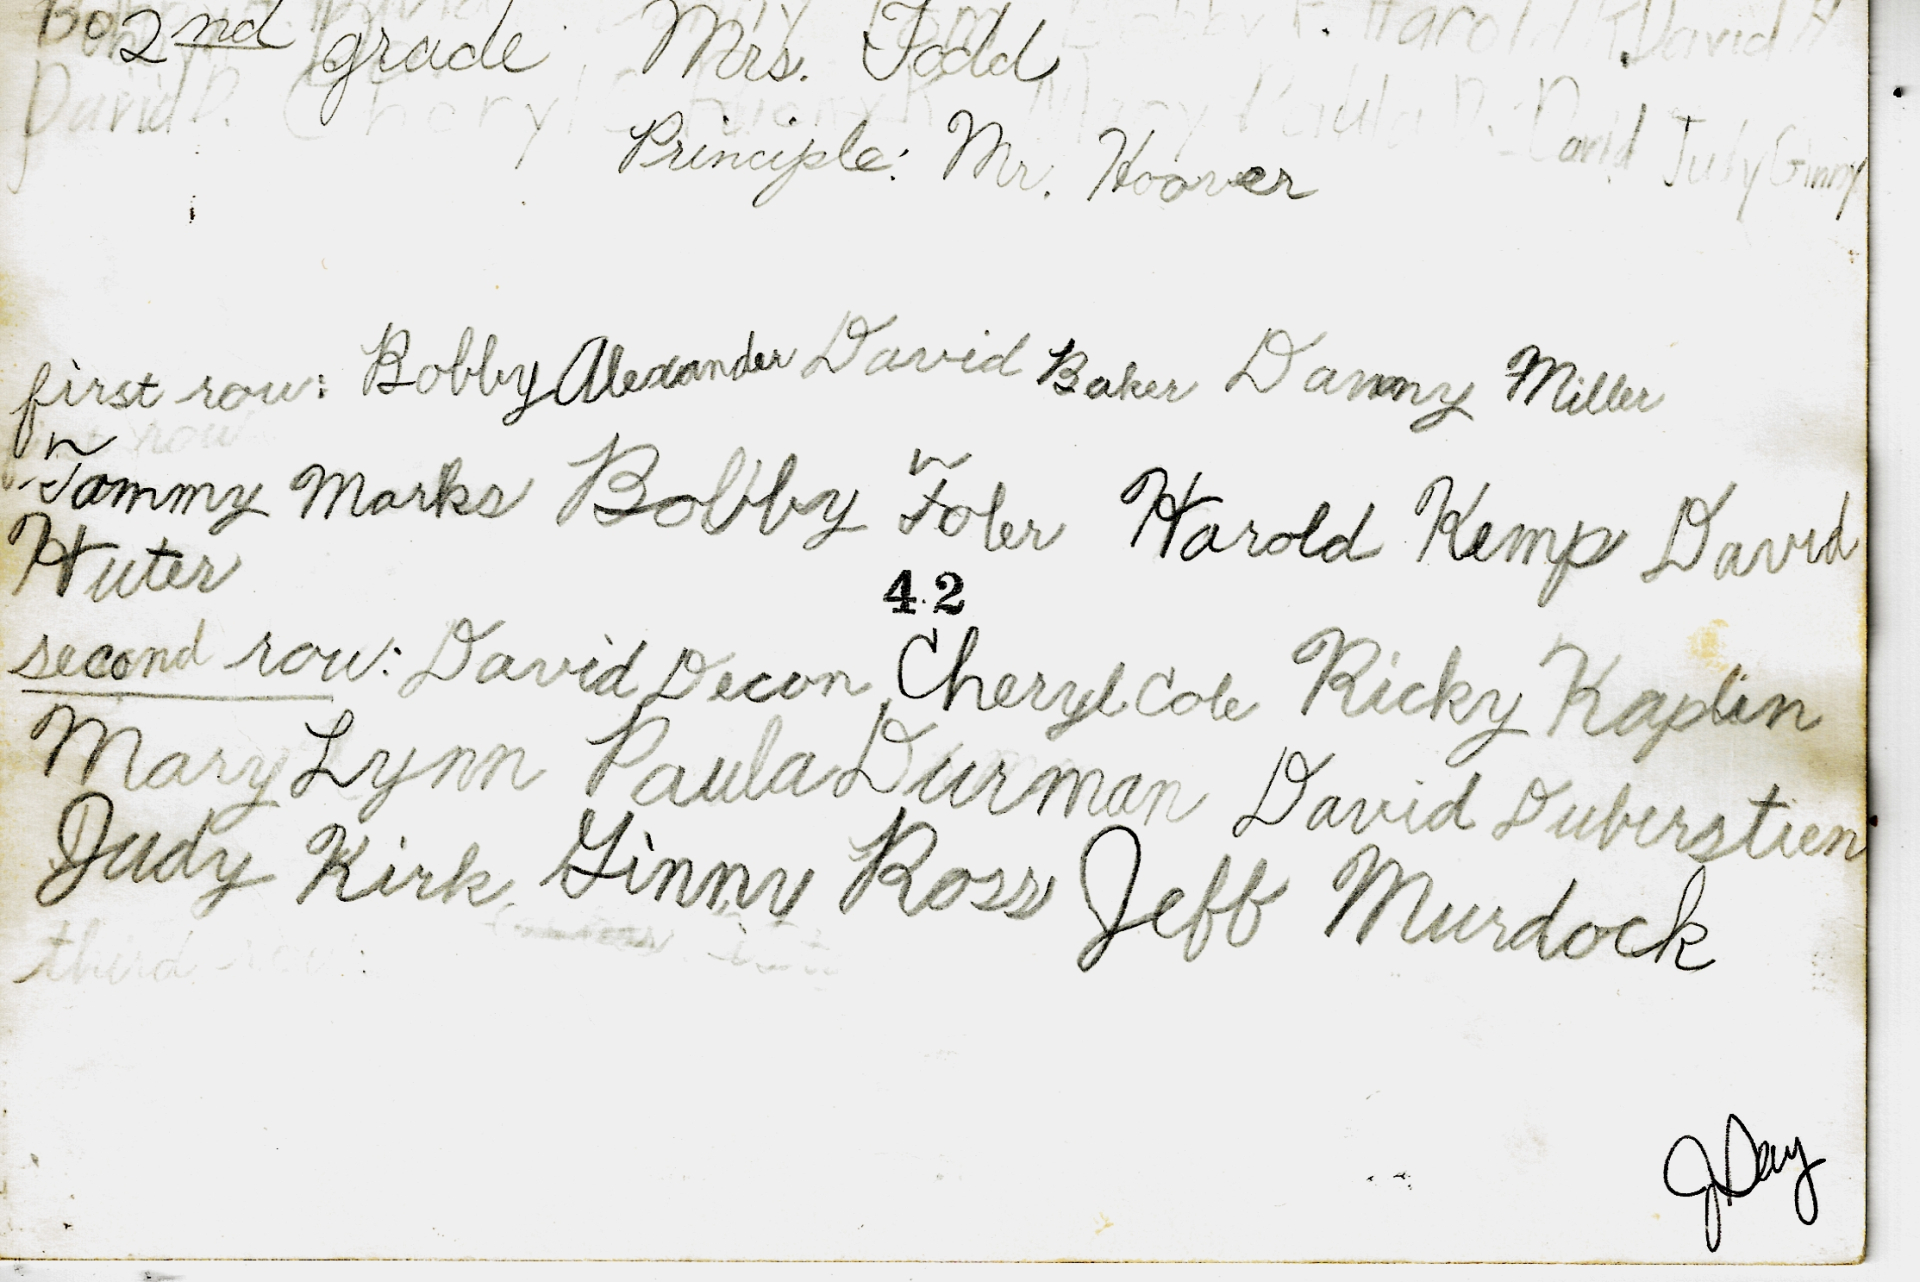 2nd grade Mrs. Todd
David D. Cheryl David Judy Ginny
Principle: Mr. Hoover
first row: Bobby Alexander David Baker Danny Miller
row
Tommy Marks Bobby Foler Harold Kemp David
Huter
42
second row: David Decon Cheryl Cole Ricky Kaplin
Mary Lynn Paula Durman David Duberstien
Judy Kirk Ginny Ross Jeff Murdock
third row:
J Day